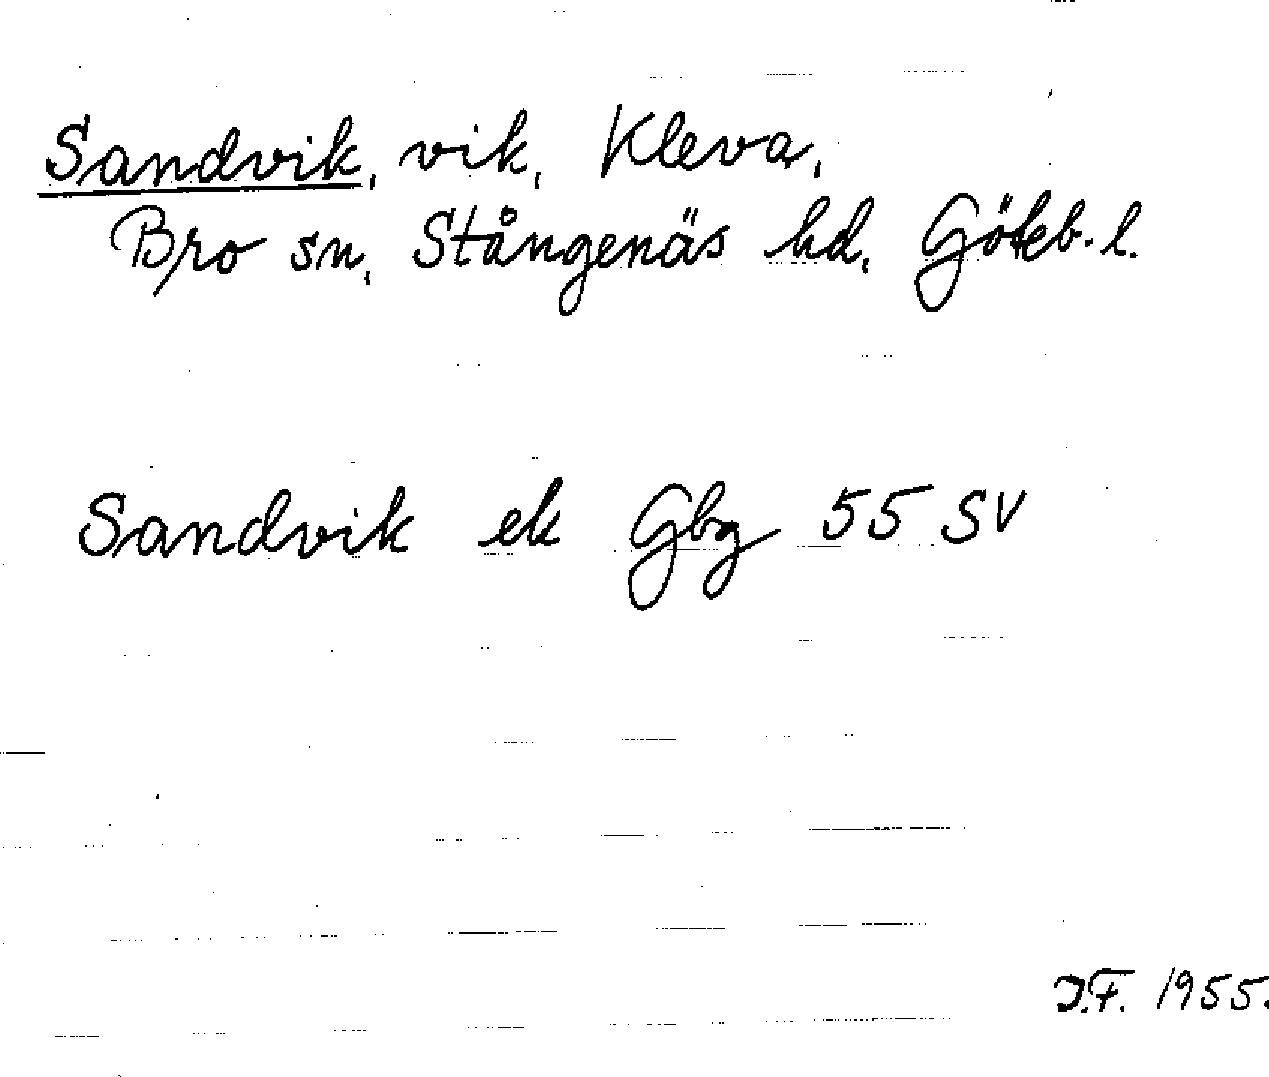 Sandvik, vik, Kleva,
Bro sn, Stångenäs hd, Göteb. l.
Sandvik ek Gbg 55 SV
J.F. 1955.